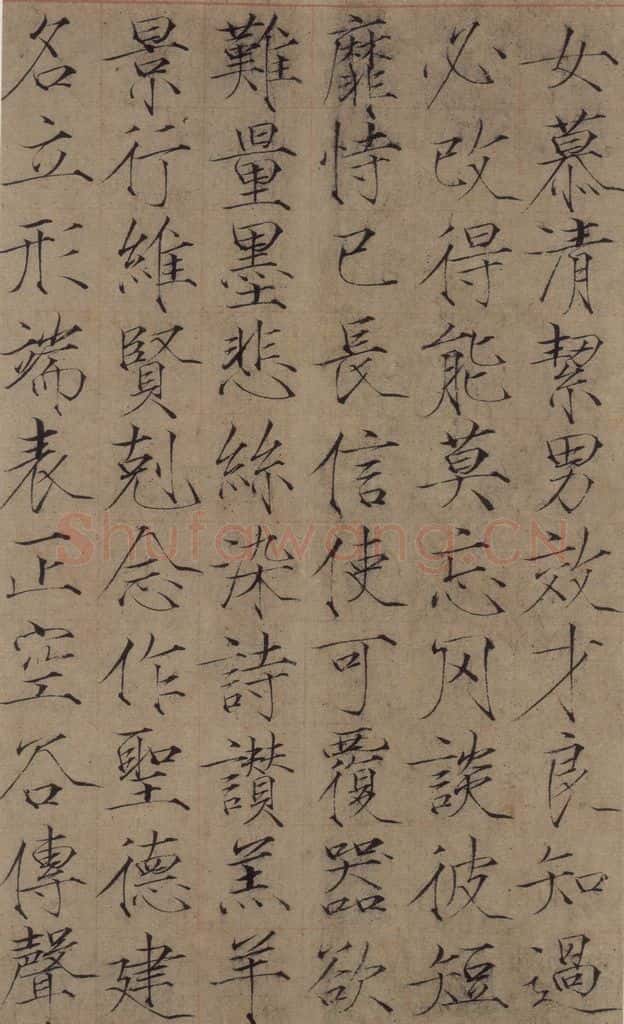 女慕清絜男效才良知過
必改得能莫忘罔談彼短
靡恃已長信使可覆器欲
難量墨悲絲染詩讚羔羊
景行維賢剋念作聖德建
名立形端表正空谷傳聲
Shufawang.CN